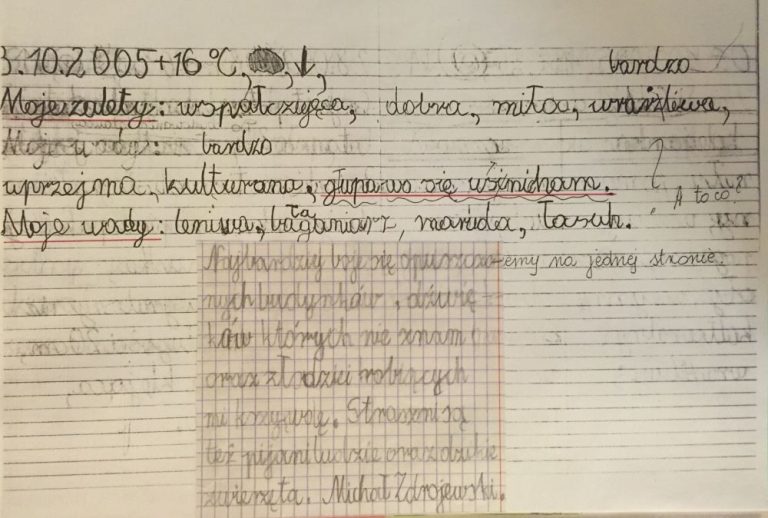 3.10.2005 +16 °C, , ↓,
bardzo
Moje zalety: współczująca, dobra, miłoa, wrażliwa,
Moje w dy: bardzo
uprzejma, kulturana, głupawo się uśmicham.
A to co?
Moje wady: leniwa, bałaganiarz, maruda, łasuh.
Najbardziy boje się opuszczo-
emy na jednej stronie.
nych budynków, dźwię-
ków których nie znam
oraz złodziei robiących
mi krzywdę. Straszni są
też pijani ludzie oraz dzikie
zwierzęta. Michał Zdrojewski.